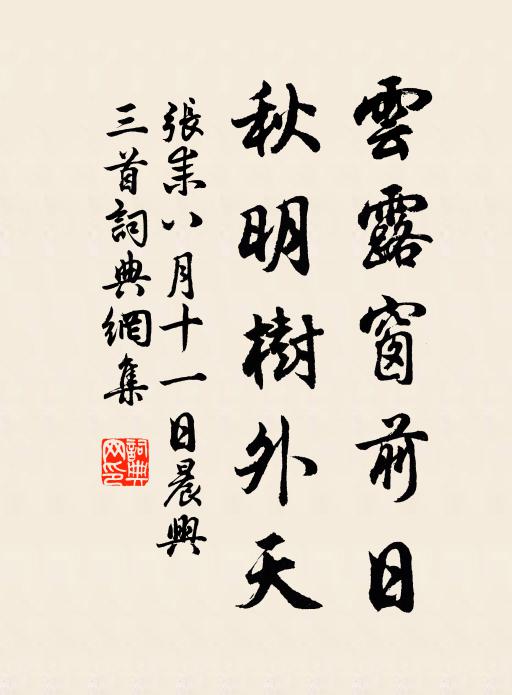 雲露窗前日
秋明樹外天
張耒八月十一日晨興
三首詞典網集
詞典
网印